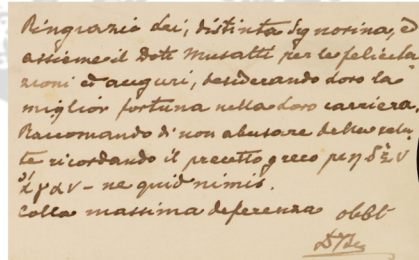 Ringrazio Lei, distinta Signorina, ed
assieme il Dott Musatti per le felicita
zioni ed auguri, desiderando loro la
miglior fortuna nella loro carriera.
Raccomando di non abusare della salu
te ricordando il precetto greco μεη δὲν
ἄγαν - ne quid nimis.
Colla massima deferenza obbt